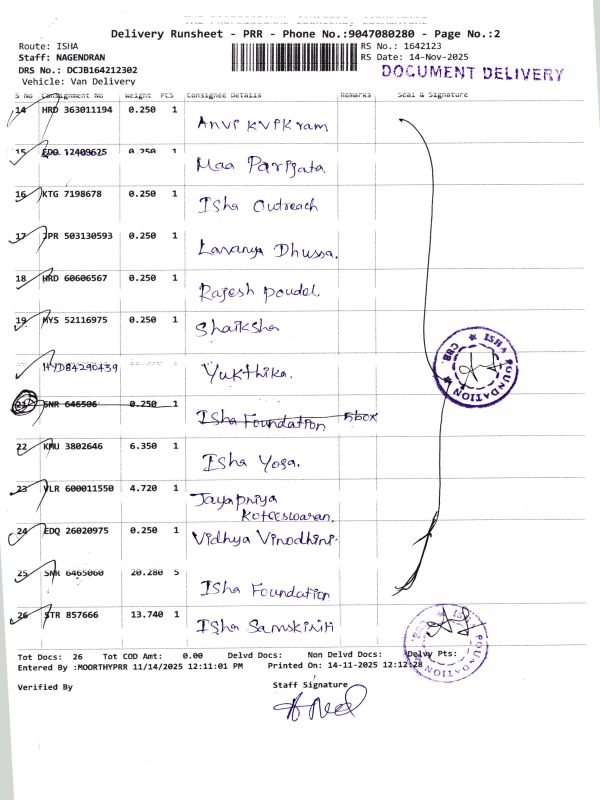 THE PROFESSIONAL COURIERS, COIMBATORE
Delivery Runsheet - PRR - Phone No.:9047080280 - Page No.:2
Route: ISHA
RS No.: 1642123
Staff: NAGENDRAN
RS Date: 14-Nov-2025
DRS No.: DCJB164212302
DOCUMENT DELIVERY
Vehicle: Van Delivery
S No Consignment No Weight PCS Consignee Details Remarks Seal & Signature
14 HRD 363011194 0.250 1 Anvi KViKram
15 EDQ 12409625 0.250 1 Maa Parijata
16 KTG 7198678 0.250 1 Isha Outreach
17 JPR 503130593 0.250 1 Lavanya Dhussa.
18 HRD 60606567 0.250 1 Rajesh poudel
19 MYS 52116975 0.250 1 Shaiksha
HYD84290439 Yukthika.
21 SNR 646506 0.250 1 Isha Foundation 5box
22 KMU 3802646 6.350 1 Isha Yoga.
23 VLR 600011550 4.720 1 Jayapriya
Koteeswaran.
24 EDQ 26020975 0.250 1 Vidhya Vinodhini.
25 SNR 6465060 20.280 5 Isha Foundation
26 STR 857666 13.740 1 Isha Samskiriti
ISHA FOUNDATION CBE.
ISHA FOUNDATION CBE.
Tot Docs: 26 Tot COD Amt: 0.00 Delvd Docs: Non Delvd Docs: Delvy Pts:
Entered By :MOORTHYPRR 11/14/2025 12:11:01 PM Printed On: 14-11-2025 12:12:28
Verified By
Staff Signature